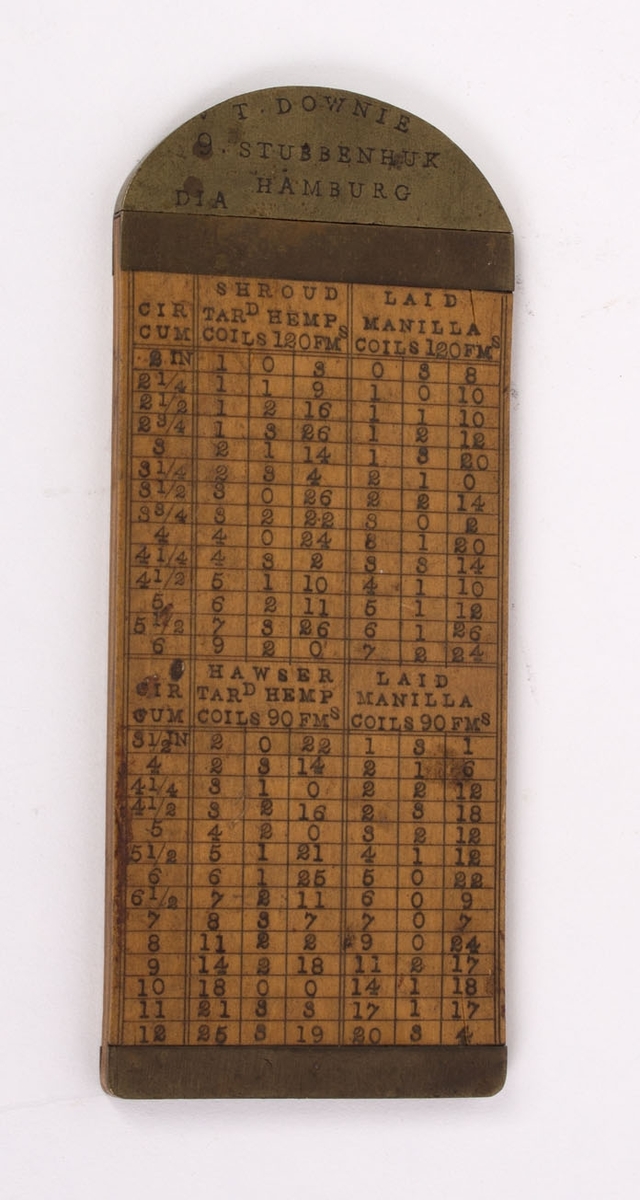 T. DOWNIE
9. STUBBENHUK
HAMBURG
DIA
SHROUD LAID
CIR TARD HEMP MANILLA
CUM COILS 120FMS COILS 120FMS
2 IN 1 0 3 0 3 8
2 1/4 1 1 9 1 0 10
2 1/2 1 2 16 1 1 10
2 3/4 1 3 26 1 2 12
3 2 1 14 1 3 20
3 1/4 2 3 4 2 1 0
3 1/2 3 0 26 2 2 14
3 3/4 3 2 22 3 0 2
4 4 0 24 3 1 20
4 1/4 4 3 2 3 3 14
4 1/2 5 1 10 4 1 10
5 6 2 11 5 1 12
5 1/2 7 3 26 6 1 26
6 9 2 0 7 2 24
HAWSER LAID
CIR TARD HEMP MANILLA
CUM COILS 90 FMS COILS 90 FMS
3 1/2 IN 2 0 22 1 3 1
4 2 3 14 2 1 6
4 1/4 3 1 0 2 2 12
4 1/2 3 2 16 2 3 18
5 4 2 0 3 2 12
5 1/2 5 1 21 4 1 12
6 6 1 25 5 0 22
6 1/2 7 2 11 6 0 9
7 8 3 7 7 0 7
8 11 2 2 9 0 24
9 14 2 18 11 2 17
10 18 0 0 14 1 18
11 21 3 3 17 1 17
12 25 3 19 20 3 4